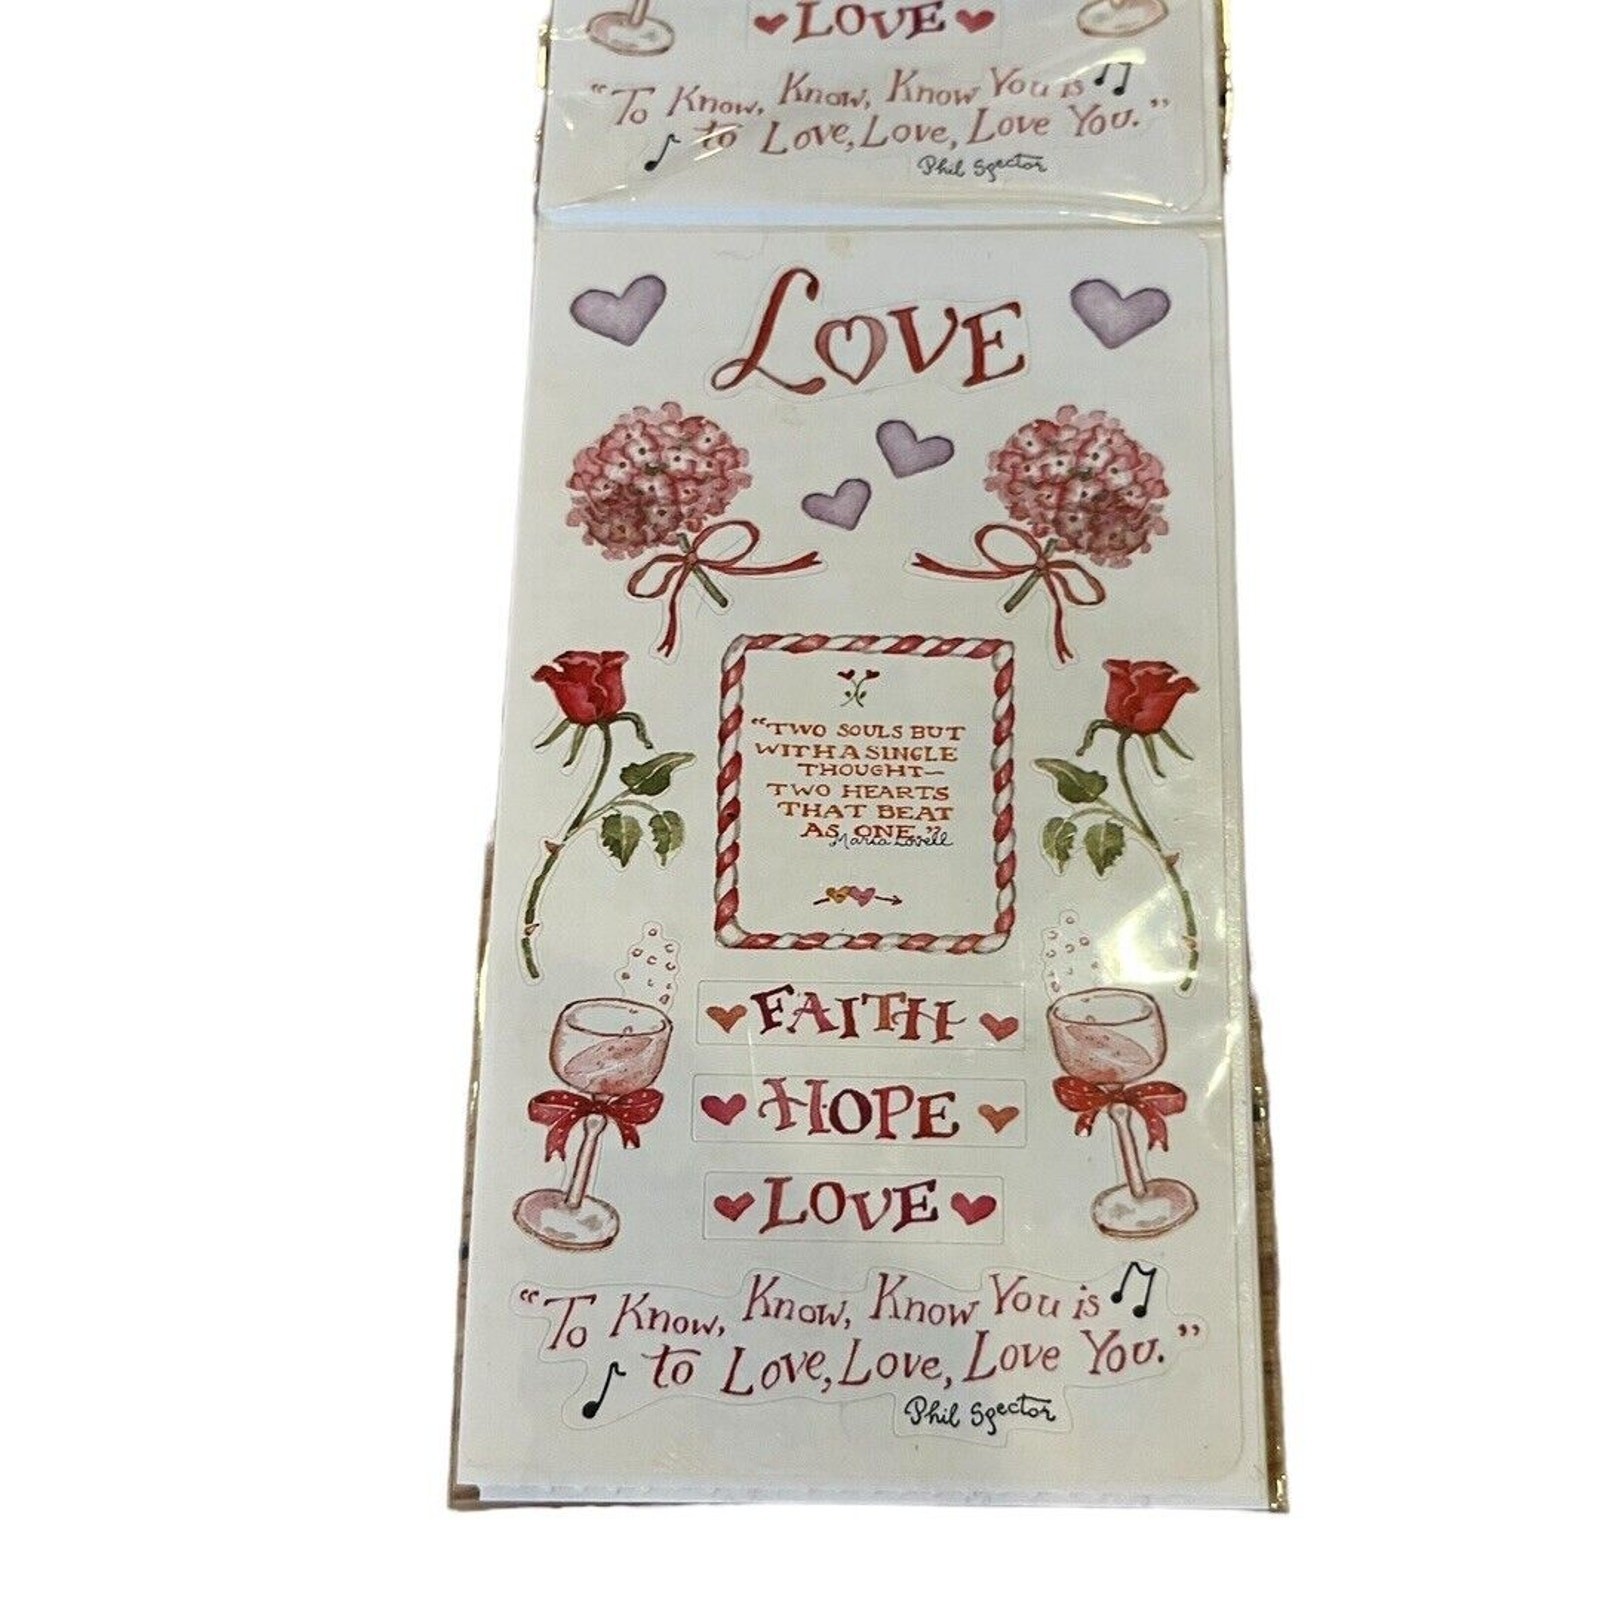 LOVE
"To Know, Know, Know You is
to Love, Love, Love You."
Phil Spector
LOVE
"TWO SOULS BUT
WITH A SINGLE
THOUGHT—
TWO HEARTS
THAT BEAT
AS ONE."
Maria Lovell
FAITH
HOPE
LOVE
"To Know, Know, Know You is
to Love, Love, Love You."
Phil Spector